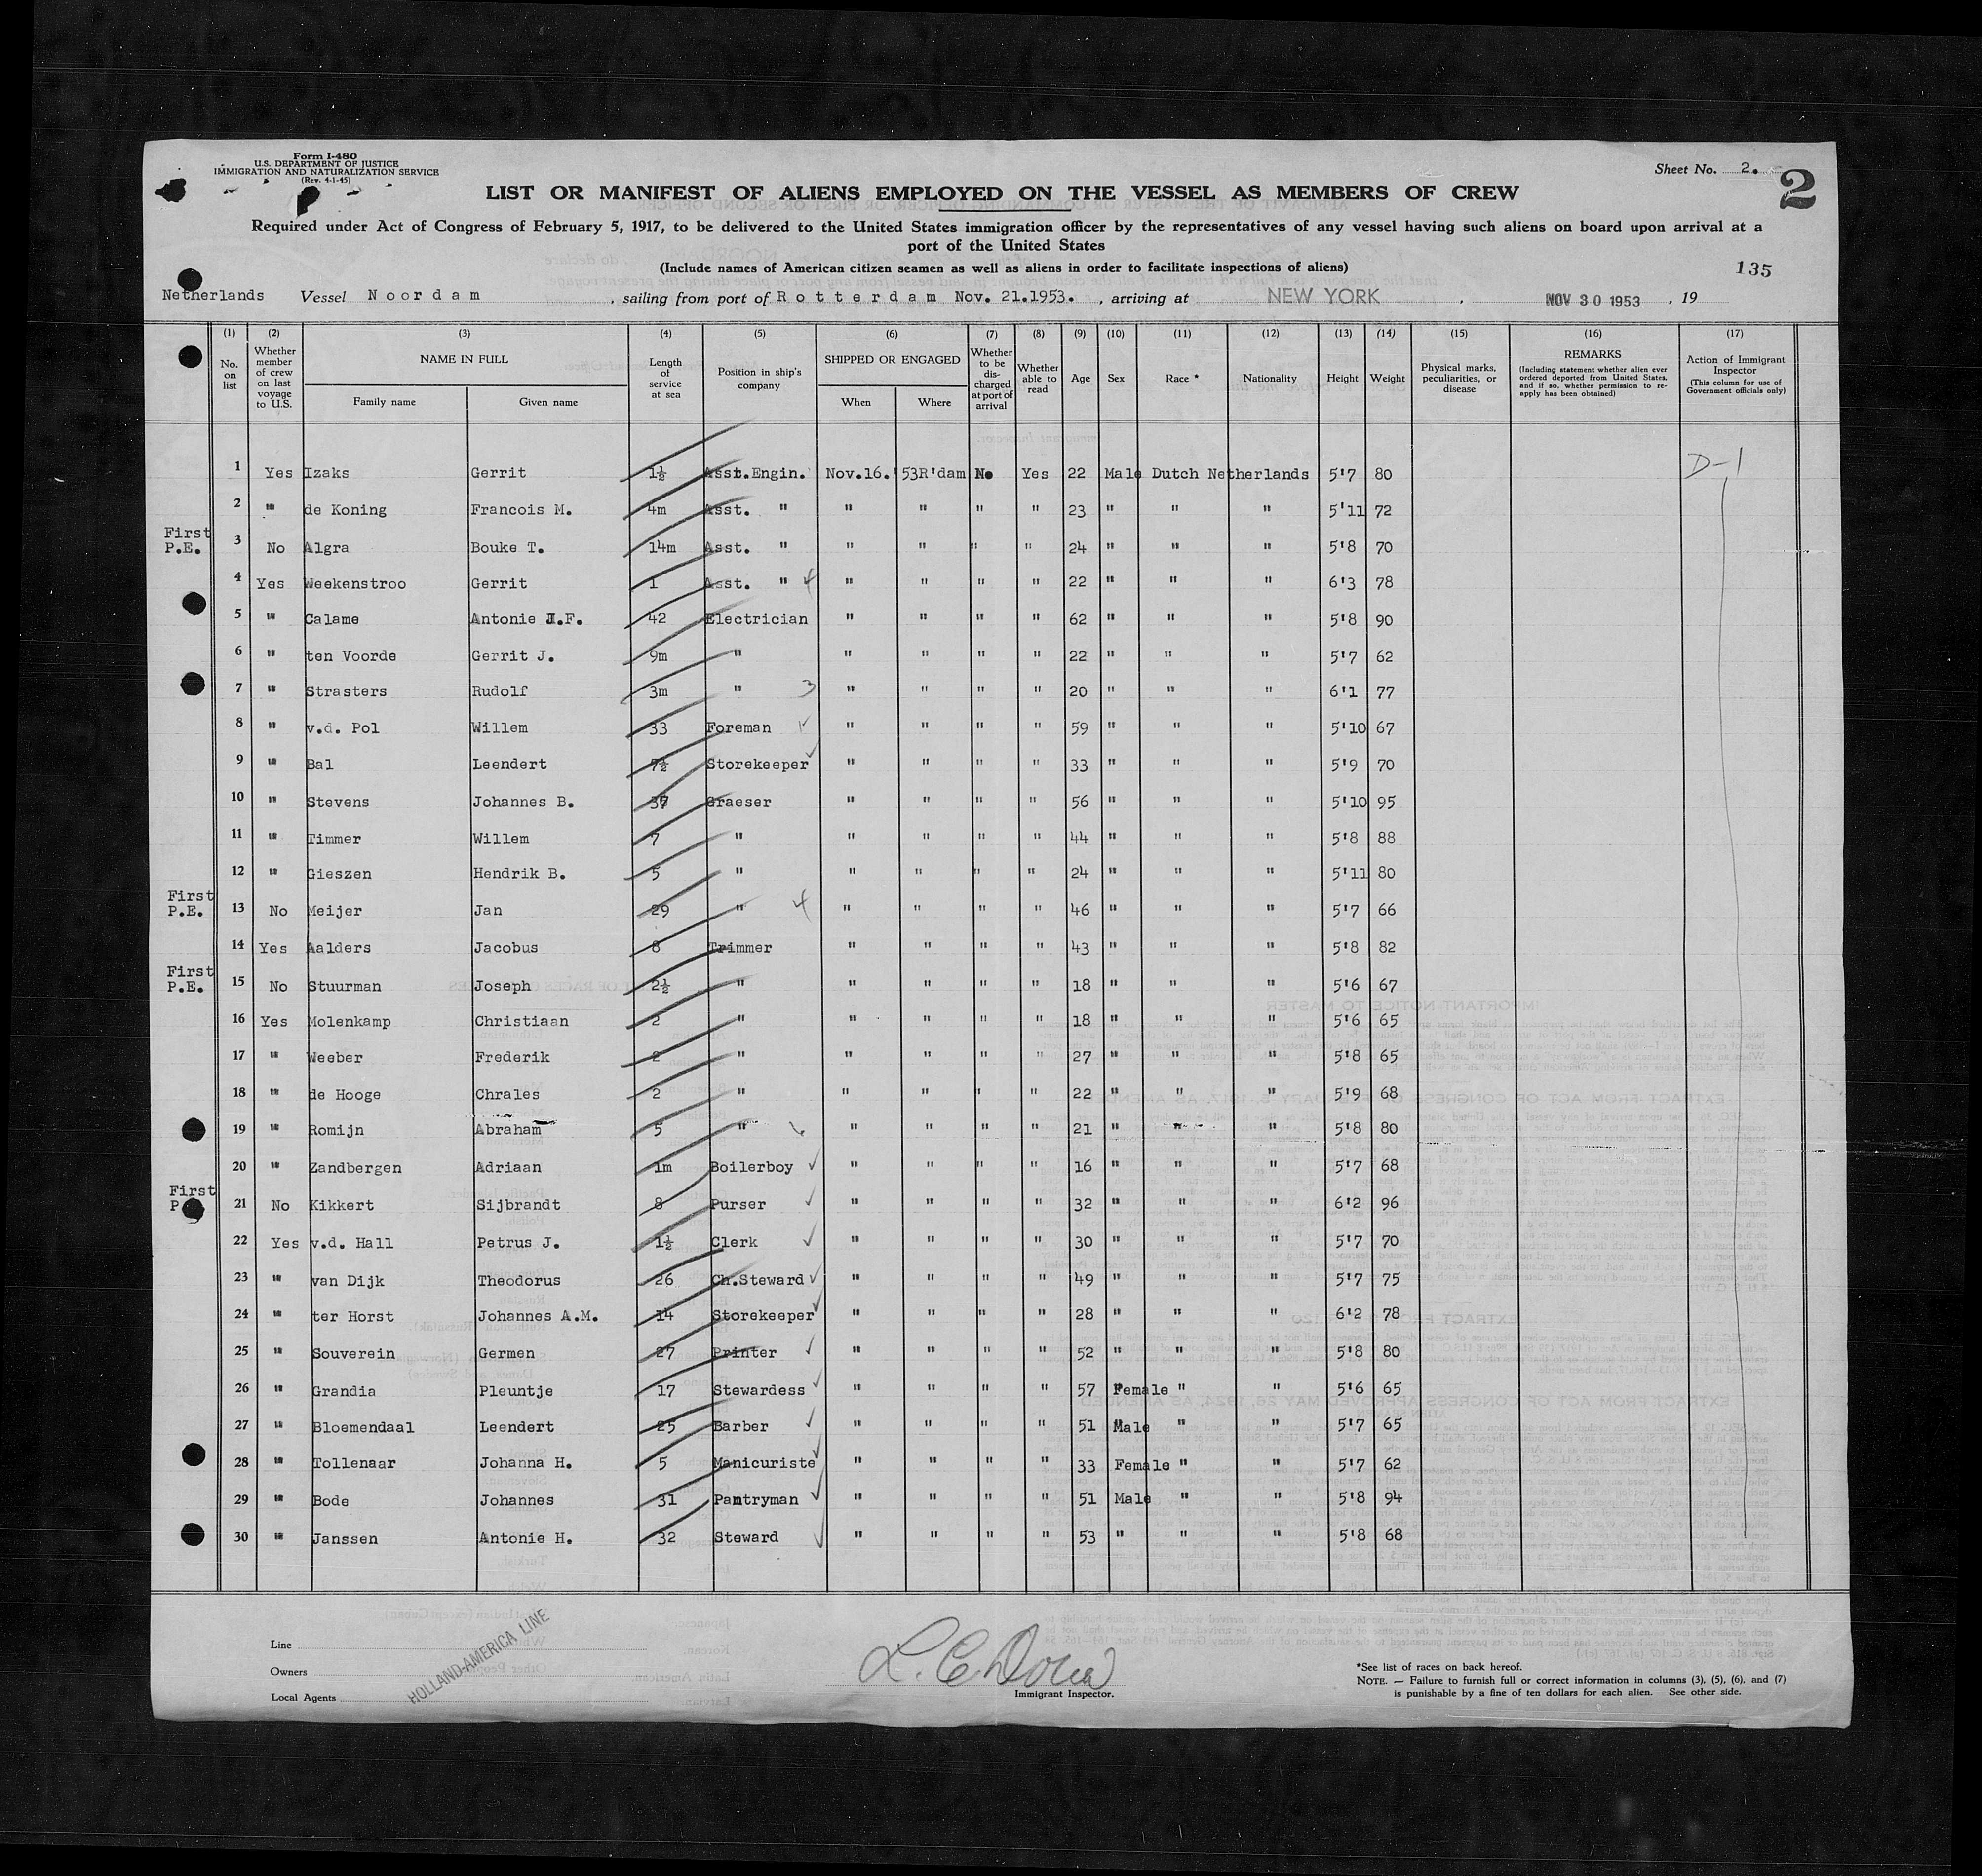 Form I-480
U.S. DEPARTMENT OF JUSTICE
IMMIGRATION AND NATURALIZATION SERVICE
(Rev. 4-1-45)
Sheet No. 2.
2
LIST OR MANIFEST OF ALIENS EMPLOYED ON THE VESSEL AS MEMBERS OF CREW
Required under Act of Congress of February 5, 1917, to be delivered to the United States immigration officer by the representatives of any vessel having such aliens on board upon arrival at a
port of the United States
(Include names of American citizen seamen as well as aliens in order to facilitate inspections of aliens)
135
Netherlands Vessel Noordam, sailing from port of Rotterdam Nov. 21.1953., arriving at NEW YORK, NOV 30 1953, 19
(1) (2) (3) (4) (5) (6) (7) (8) (9) (10) (11) (12) (13) (14) (15) (16) (17)
No. on list
Whether member of crew on last voyage to U.S.
NAME IN FULL
Family name
Given name
Length of service at sea
Position in ship's company
SHIPPED OR ENGAGED
When
Where
Whether to be discharged at port of arrival
Whether able to read
Age
Sex
Race *
Nationality
Height
Weight
Physical marks, peculiarities, or disease
REMARKS
(Including statement whether alien ever ordered deported from United States, and if so, whether permission to re-apply has been obtained)
Action of Immigrant Inspector
(This column for use of Government officials only)
1 Yes Izaks Gerrit 1½ Asst.Engin. Nov.16.'53 R'dam No Yes 22 Male Dutch Netherlands 5'7 80 D-1
2 " de Koning Francois M. 4m Asst. " " " " " 23 " " " 5'11 72
First P.E. 3 No Algra Bouke T. 14m Asst. " " " " " 24 " " " 5'8 70
4 Yes Weekenstroo Gerrit 1 Asst. " 4 " " " " 22 " " " 6'3 78
5 " Calame Antonie J.F. 42 Electrician " " " " 62 " " " 5'8 90
6 " ten Voorde Gerrit J. 9m " " " " " 22 " " " 5'7 62
7 " Strasters Rudolf 3m " 3 " " " " 20 " " " 6'1 77
8 " v.d. Pol Willem 33 Foreman " " " " 59 " " " 5'10 67
9 " Bal Leendert 7½ Storekeeper " " " " 33 " " " 5'9 70
10 " Stevens Johannes B. 37 Graeser " " " " 56 " " " 5'10 95
11 " Timmer Willem 7 " " " " " 44 " " " 5'8 88
12 " Gieszen Hendrik B. 5 " " " " " 24 " " " 5'11 80
First P.E. 13 No Meijer Jan 29 " 4 " " " " 46 " " " 5'7 66
14 Yes Aalders Jacobus 8 Trimmer " " " " 43 " " " 5'8 82
First P.E. 15 No Stuurman Joseph 2½ " " " " " 18 " " " 5'6 67
16 Yes Molenkamp Christiaan 2 " " " " " 18 " " " 5'6 65
17 " Weeber Frederik 2 " " " " " 27 " " " 5'8 65
18 " de Hooge Chrales 2 " " " " " 22 " " " 5'9 68
19 " Romijn Abraham 5 " " " " " 21 " " " 5'8 80
20 " Zandbergen Adriaan 1m Boilerboy " " " " 16 " " " 5'7 68
First P. 21 No Kikkert Sijbrandt 8 Purser " " " " 32 " " " 6'2 96
22 Yes v.d. Hall Petrus J. 1½ Clerk " " " " 30 " " " 5'7 70
23 " van Dijk Theodorus 26 Ch.Steward " " " " 49 " " " 5'7 75
24 " ter Horst Johannes A.M. 14 Storekeeper " " " " 28 " " " 6'2 78
25 " Souverein Germen 27 Printer " " " " 52 " " " 5'8 80
26 " Grandia Pleuntje 17 Stewardess " " " " 57 Female " " 5'6 65
27 " Bloemendaal Leendert 25 Barber " " " " 51 Male " " 5'7 65
28 " Tollenaar Johanna H. 5 Manicuriste " " " " 33 Female " " 5'7 62
29 " Bode Johannes 31 Pantryman " " " " 51 Male " " 5'8 94
30 " Janssen Antonie H. 32 Steward " " " " 53 " " " 5'8 68
Line
Owners
Local Agents
HOLLAND-AMERICA LINE
Immigrant Inspector.
*See list of races on back hereof.
NOTE. — Failure to furnish full or correct information in columns (3), (5), (6), and (7)
is punishable by a fine of ten dollars for each alien. See other side.